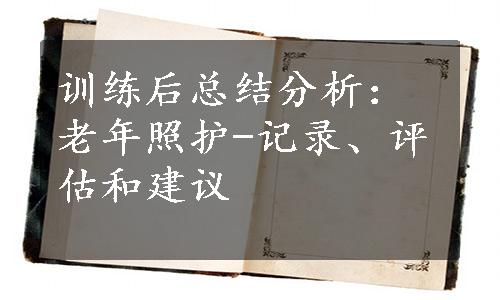 训练后总结分析：
老年照护-记录、评
估和建议